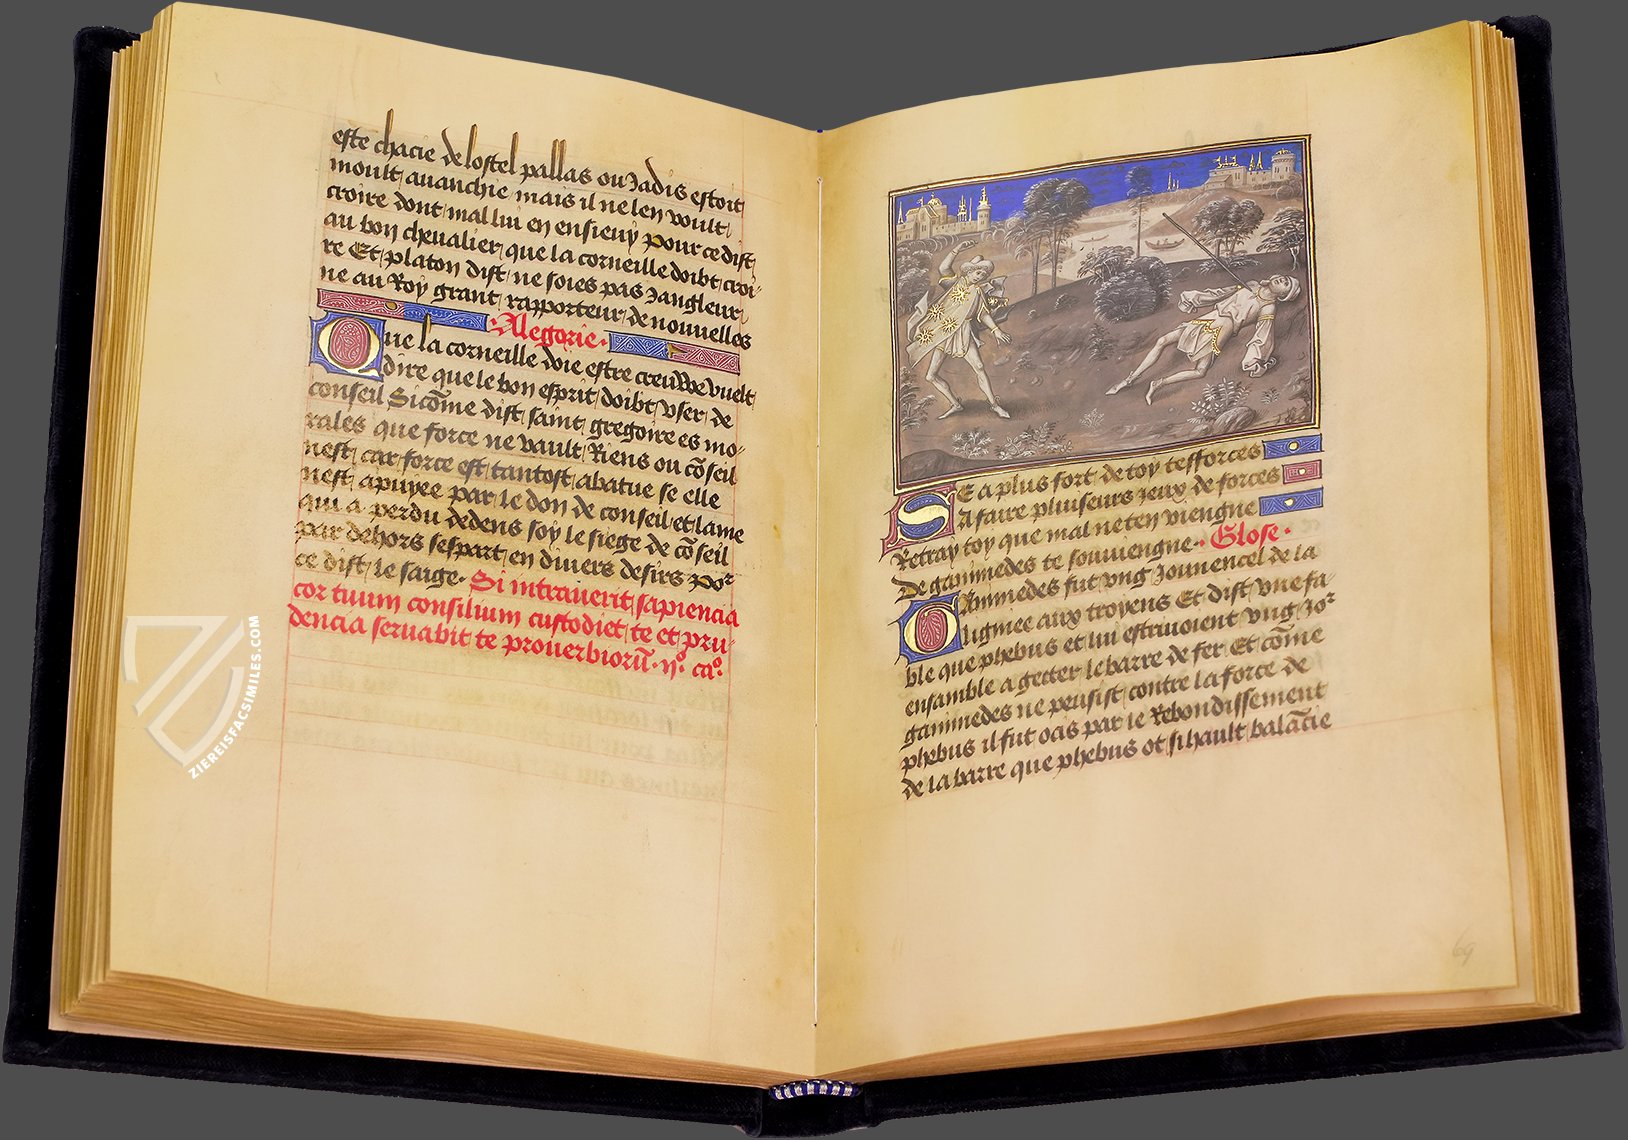 este chacie de lostel pallas ou Jadis estoit
moult auanchie mais il ne len voult
croire dont mal lui en ensieuy pour ce dist
au bon cheualier que la corneille doibt croi-
re Et platon dist ne soies pas Jangleur
ne au Roy grant rapporteur de nouuelles
Alegorie.
Que la corneille doie estre creuwe vuelt
dire que le bon esprit doibt vser de
conseil Sicōme dist saint gregoire es mo-
rales que force ne vault Riens ou cōseil
nest car force est tantost abatue se elle
nest apuyee par le don de conseil et lame
qui a perdu dedens soy le siege de cōseil
par dehors sespart en diuers desirs por
ce dist le saige. Si intrauerit sapiencia
cor tuum consilium custodiet te et pru-
dencia seruabit te prouerbiorū. ijo. cao.
SE a plus fort de toy tefforces
A faire pluiseurs Jeux de forces
Retray toy que mal ne ten viengne
De ganimedes te souuiengne. Glose.
Ganimedes fut vng Jouuencel de la
ligniee aux troyens Et dist vne fa-
ble que phebus et lui estriuoient vng Jor
ensamble a getter le barre de fer Et cōme
ganimedes ne peusist contre la force de
phebus il fut ocis par le Rebondissement
de la barre que phebus ot si hault balācie
69
ZIEREISFACSIMILES.COM